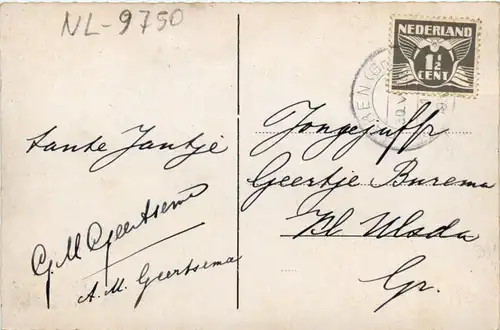 NL-9750
NEDERLAND
1½
CENT
REN (Gn
tante Jantje
G. M Geertsema
A. M. Geertsema
Jongejuffr
Geertje Burema
Kl Ulsda
Gr.